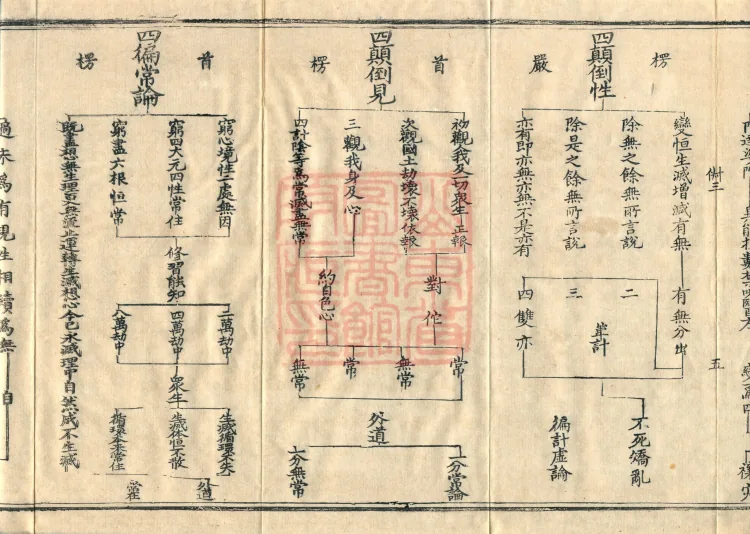 楞嚴
四顛倒性
變恒生滅增減有無
除無之餘無所言說
除是之餘無所言說
亦有即亦無亦無不是亦有
有無分出
二
三
四雙亦
並計
不死矯亂
徧計虛論
首楞
四顛倒見
初觀我及一切衆生 正報
次觀國土劫壞不壞依報
三觀我身及心
四計陰等為常滅盡無常
對佗
約自色心
常
無常
常
無常
外道
一分常論
一分無常
首楞
四徧常論
窮心境性二處無因
窮四大元四性常住
窮盡六根恒常
既盡想無生理更無流止運轉生滅想心今已永滅理中自然成不生滅
修習能知
二萬劫中
四萬劫中
八萬劫中
衆生
生滅循環不失
生滅体恒不散
循環本來常住
外道
過未為有現生相續為無
五